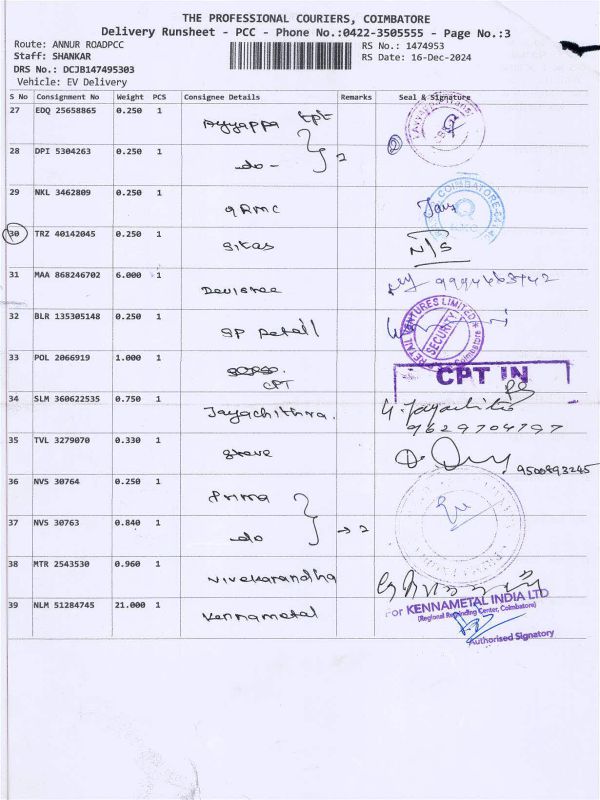 THE PROFESSIONAL COURIERS, COIMBATORE
Delivery Runsheet - PCC - Phone No.:0422-3505555 - Page No.:3
Route: ANNUR ROADPCC RS No.: 1474953
Staff: SHANKAR RS Date: 16-Dec-2024
DRS No.: DCJB147495303
Vehicle: EV Delivery
S No Consignment No Weight PCS Consignee Details Remarks Seal & Signature
27 EDQ 25658865 0.250 1 Ayyappa tpt
28 DPI 5304263 0.250 1 -do- 2
29 NKL 3462809 0.250 1 GRMC
30 TRZ 40142045 0.250 1 Sitas N/S
31 MAA 868246702 6.000 1 Devisree
32 BLR 135305148 0.250 1 SP Retail RETAIL VENTURES LIMITED SECURITY Coimbatore
33 POL 2066919 1.000 1 CPT CPT IN
34 SLM 360622535 0.750 1 Jayachithra. 9629704797
35 TVL 3279070 0.330 1 Steve 9500893245
36 NVS 30764 0.250 1 Prima
37 NVS 30763 0.840 1 do → 2
38 MTR 2543530 0.960 1 Vivekanandha
39 NLM 51284745 21.000 1 Kennametal For KENNAMETAL INDIA LTD
Authorised Signatory